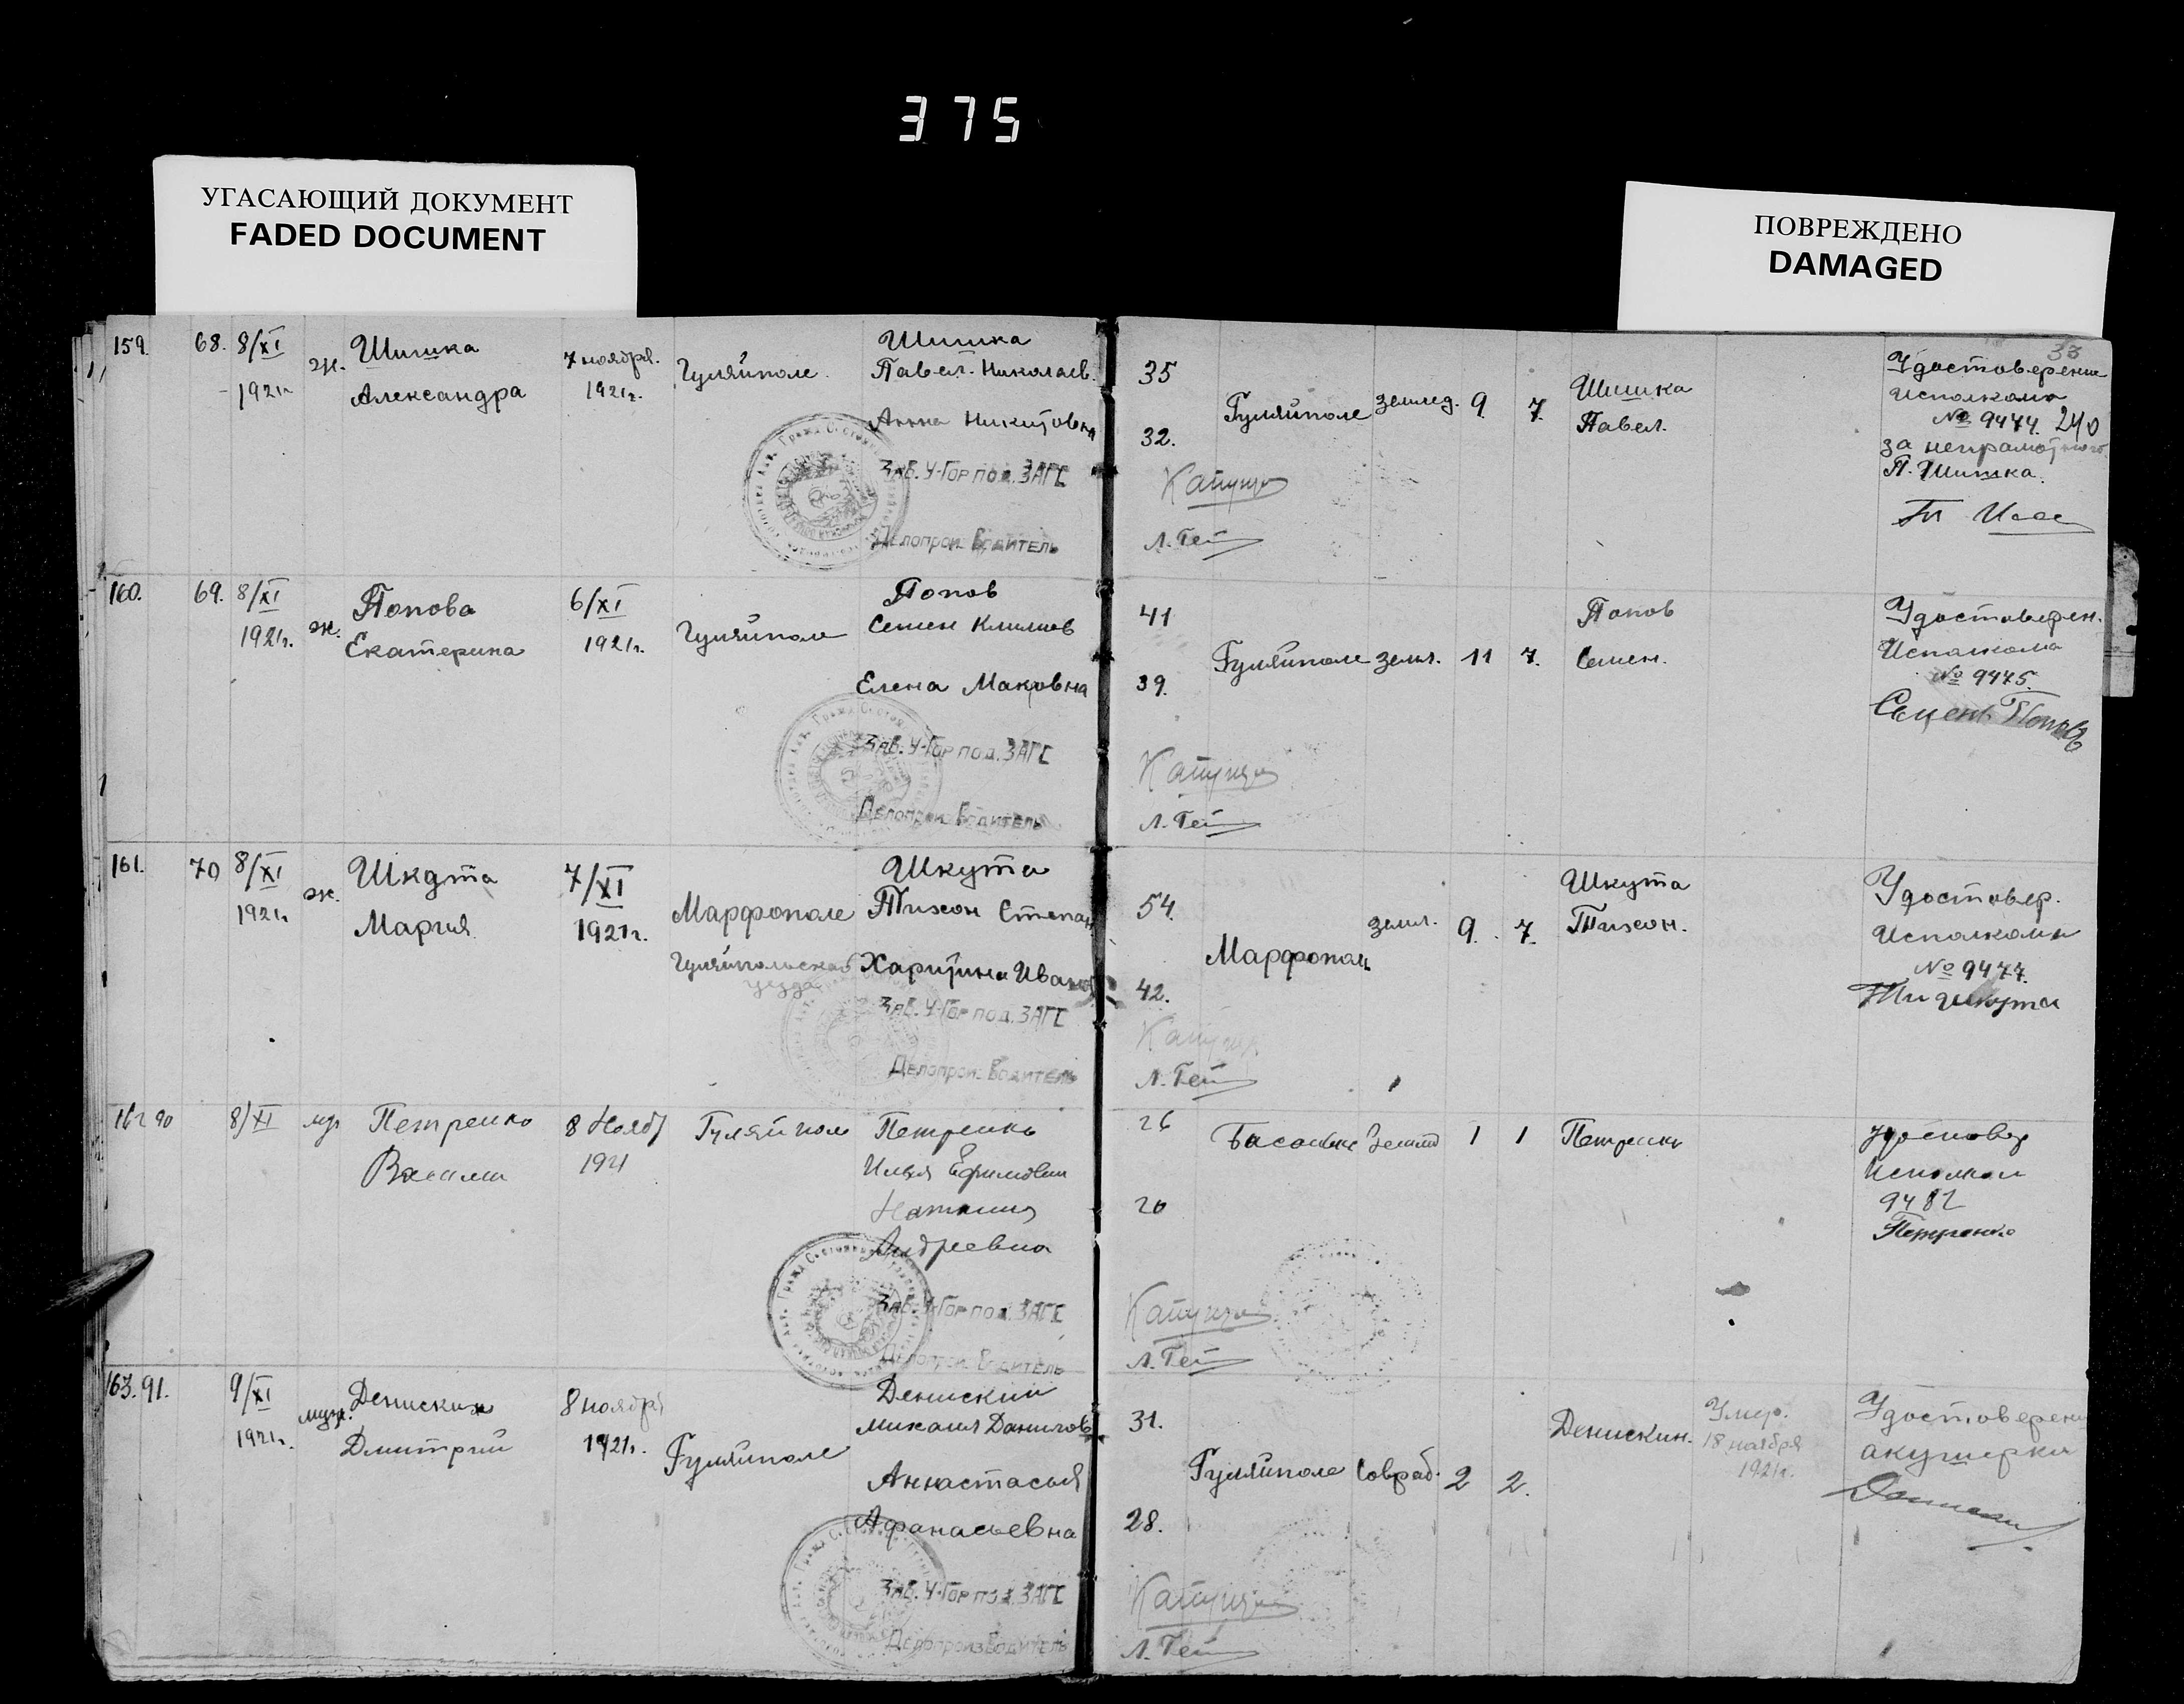 375
УГАСАЮЩИЙ ДОКУМЕНТ
FADED DOCUMENT
ПОВРЕЖДЕНО
DAMAGED
33
159. 68. 8/XI
1921г.
ж.
Шишка
Александра
7 ноября.
1921г.
Гуляйполе.
Шишка
Павел Николаев.
Анна Никитовна
Зав. У-Гор под. ЗАГС
Делопроизводитель
35
32.
Гуляйполе землед. 9. 7.
Шишка
Павел.
Удостоверение
исполкома
№ 9474. 240
за неграмотного
П. Шишка.
Л. Гей
160. 69. 8/XI
1921г.
ж.
Попова
Екатерина
6/XI
1921г.
Гуляйполе
Попов
Семен Климов
Елена Маковна
Зав. У-Гор под. ЗАГС
Делопроизводитель
41
39.
Гуляйполе земл. 11 7.
Попов
Семен.
Удостоверен.
Исполкома
№ 9475.
Семен Попов
Л. Гей
161. 70 8/XI
1921г
ж.
Шкута
Мария
7/XI
1921г.
Марфополе
Гуляйпольской
уезда
Шкута
Тихон Степан
Харитина Иванов
Зав. У-Гор под. ЗАГС
Делопроизводитель
54.
42.
Марфополь
земл. 9. 7.
Шкута
Тихон.
Удостовер.
Исполкома
№ 9477.
Ти Шкута
Л. Гей
162 90 8/XI
муж
Петренко
Василий
8 Нояб
1921
Гуляйполе
Петренко
Илья Ефимович
Наталия
Андреевна
Зав. У-Гор под. ЗАГС
Делопроизводитель
26
20
Басань 1 1
Петренко
удостовер
Исполком
9482
Петренко
Л. Гей
163. 91. 9/XI
1921г.
муж.
Денискин
Дмитрий
8 ноября
1921г.
Гуляйполе
Денискин
Михаил Данилов
Аннастасья
Афанасьевна
Зав. У-Гор под. ЗАГС
Делопроизводитель
31.
28.
Гуляйполе Совраб. 2 2.
Денискин.
Умер.
18 ноября
1921г.
Удостоверени
акушерки
Л. Гей